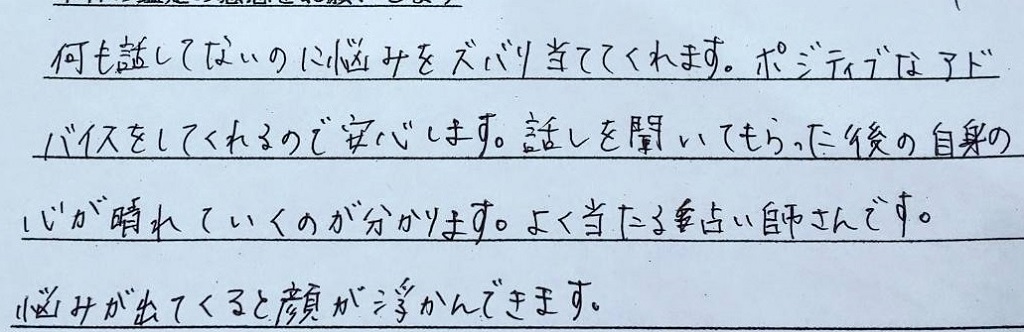 何も話してないのに悩みをズバリ当ててくれます。ポジティブなアド
バイスをしてくれるので安心します。話しを聞いてもらった後の自身の
心が晴れていくのが分かります。よく当たる占い師さんです。
悩みが出てくると顔が浮かんできます。